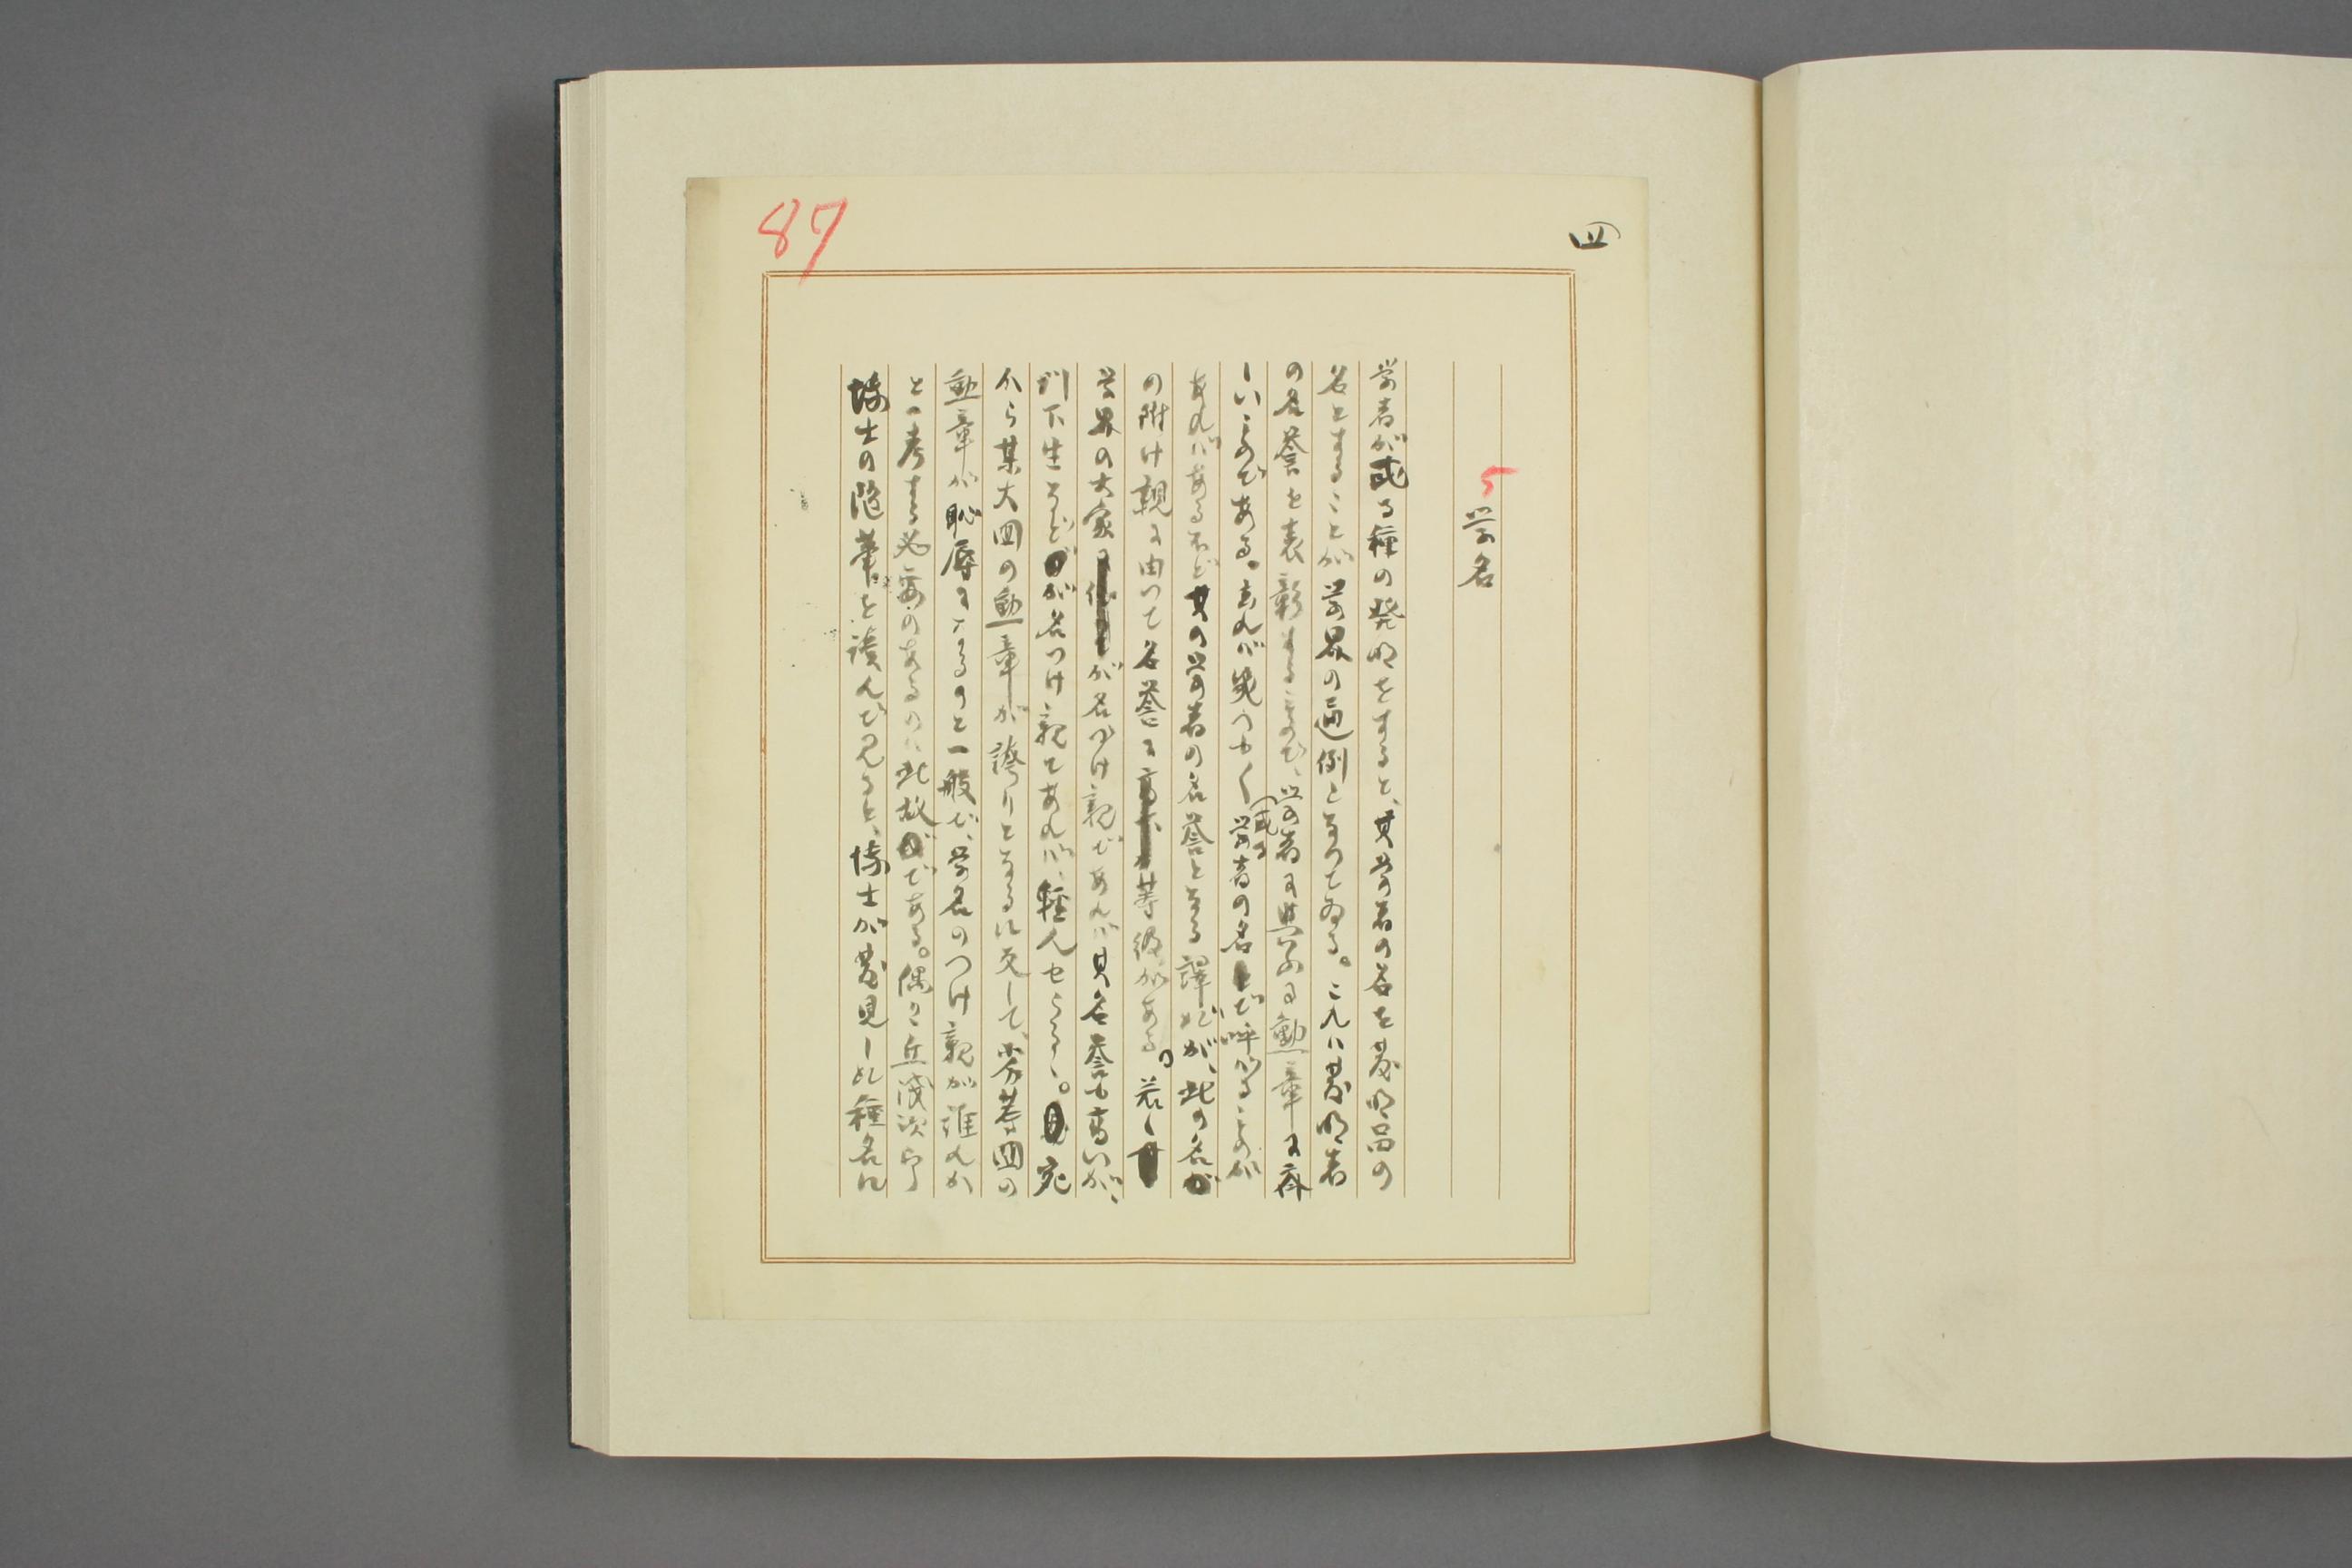 四
87
5
学名
学者が或る種の発明をすると、其学者の名を発明品の
名とすることが学界の通例となつてゐる。これは発明者
の名誉を表彰することで、学者に与ふる勲章に斉
しいものである。されば
(或る
学者の名で呼ばるゝものが
あればあるほど其の学者の名誉となる譯だが、此の名が
の附け親に由つて名誉に等級がある。若し
学界の大家が名づけ親であれば其名誉も高いが、
門下生などが名づけ親であれば、軽んせらるゝ。宛
から某大国の勲章が誇りとなるに反して、劣等国の
勲章が恥辱になるのと一般で、学名のつけ親が誰れか
と一考する必要のあるのは此故である。偶々丘浅次郎
博士の随筆を読んで見ると、博士が発見した種名に